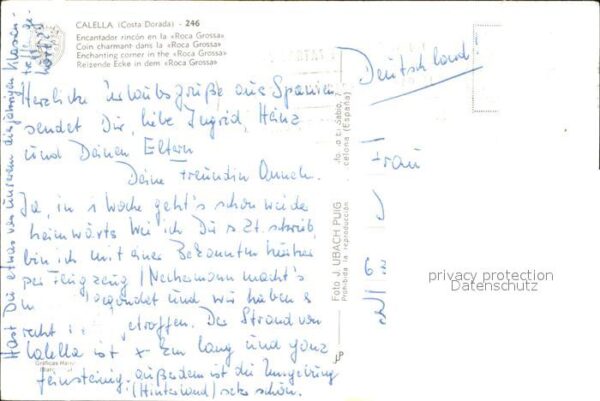 CALELLA (Costa Dorada) - 246
Encantador rincón en la «Roca Grossa»
Coin charmant dans la «Roca Grossa»
Enchanting corner in the «Roca Grossa»
Reizende Ecke in dem «Roca Grossa»
Herzliche Urlaubsgrüße aus Spanien
sendet Dir, liebe Ingrid, Heinz
und Deinen Eltern
Deine Freundin
Ja, in 1 Woche geht's schon wieder
heimwärts. Wie ich Dir z. Zt. schrieb,
bin ich mit einer Bekannten hierher
per Flugzeug (Neckermann macht's
und wir haben
recht getroffen. Der Strand von
Calella ist x km lang und ganz
feinsteinig, außerdem ist die Umgebung
(Hinterland) sehr schön.
Hast Du etwas von unserem diesjährigen Klassen-
treffen ge-
hört?
Foto J. UBACH PUIG
Prohibida la reproducción
celona (España)
Deutschland!
Frau
privacy protection
Datenschutz